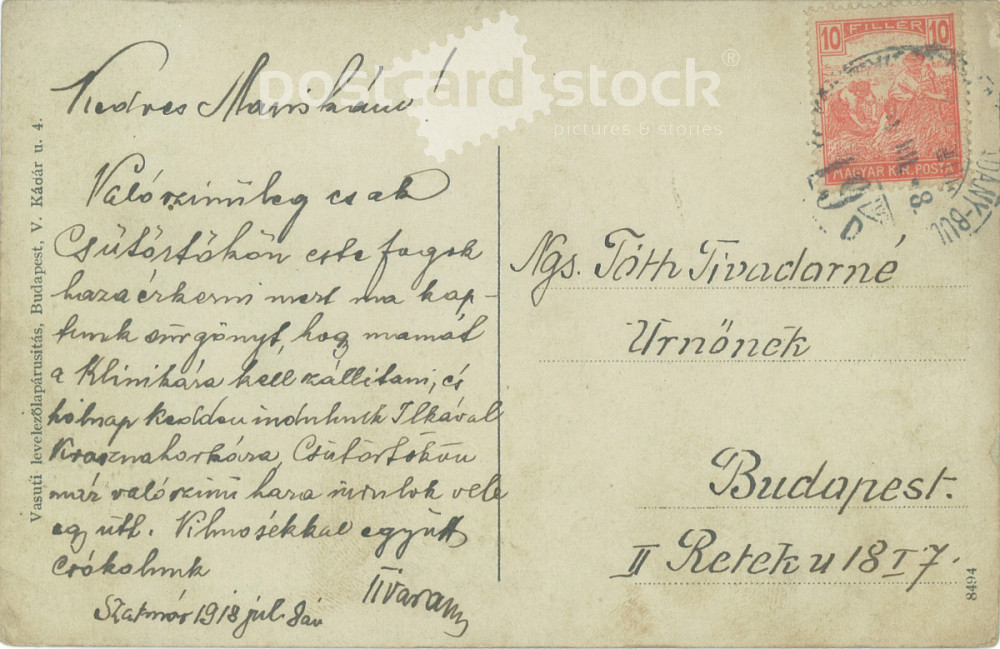 postcard stock®
pictures & stories
10 FILLER 10
MAGYAR KIR. POSTA
Kedves Mariskám!
Valószinüleg csak
Csütörtökön este fogok
hazaérkezni mert ma kap-
tunk sürgönyt, hog mamát
a klinikára kell szállitani, és
holnap kedden indulunk Ilkával
Krasznahorkára, Csütörtökön
már valószinü haza indulok vele
együtt. Vilmosékkal együtt
csókolunk
Tivadar
Szatmár 1918 júl. 8án
Ngs. Tóth Tivadarné
Urnőnek
Budapest.
II Retek u 18 I 7.
Vasuti levelezőlapárusitás, Budapest, V. Kádár u. 4.
8494